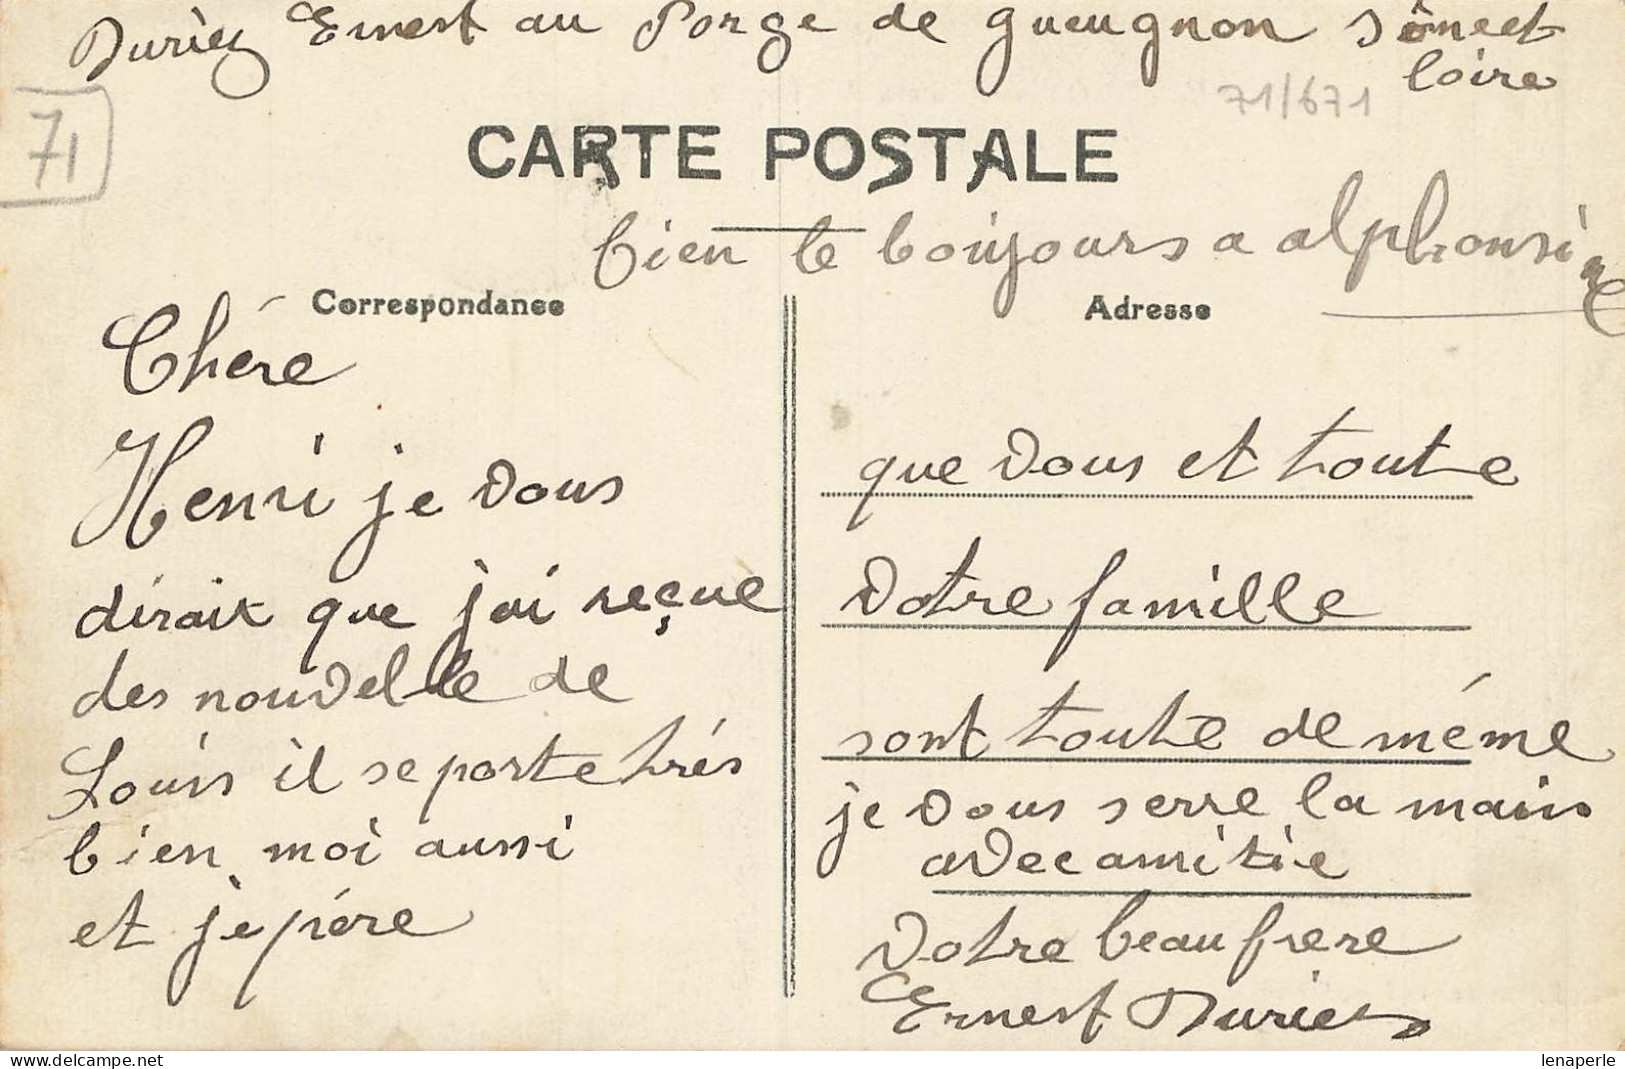 Duriez Ernest au Porge de gueugnon Sône et
loire
71/671
71
CARTE POSTALE
bien le boijours a alphonsine
Correspondance
Adresse
Chére
Henri je vous
dirait que j'ai reçue
des nouvelle de
Louis il se porte trés
bien moi aussi
et j'epére
que vous et toute
votre famille
sont toute de méme
je vous serre la main
avec amitie
votre beau frere
Ernest Duriez
https://www.delcampe.net
lenaperle